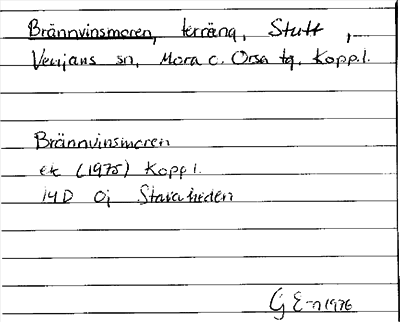 Brännvinsmoren, terräng, Stutt,
Venjans sn, Mora o. Orsa tg, Kopp.l.
Brännvinsmoren
ek (1975) Kopp l.
14D 0j Stavaheden
G E-n 1976